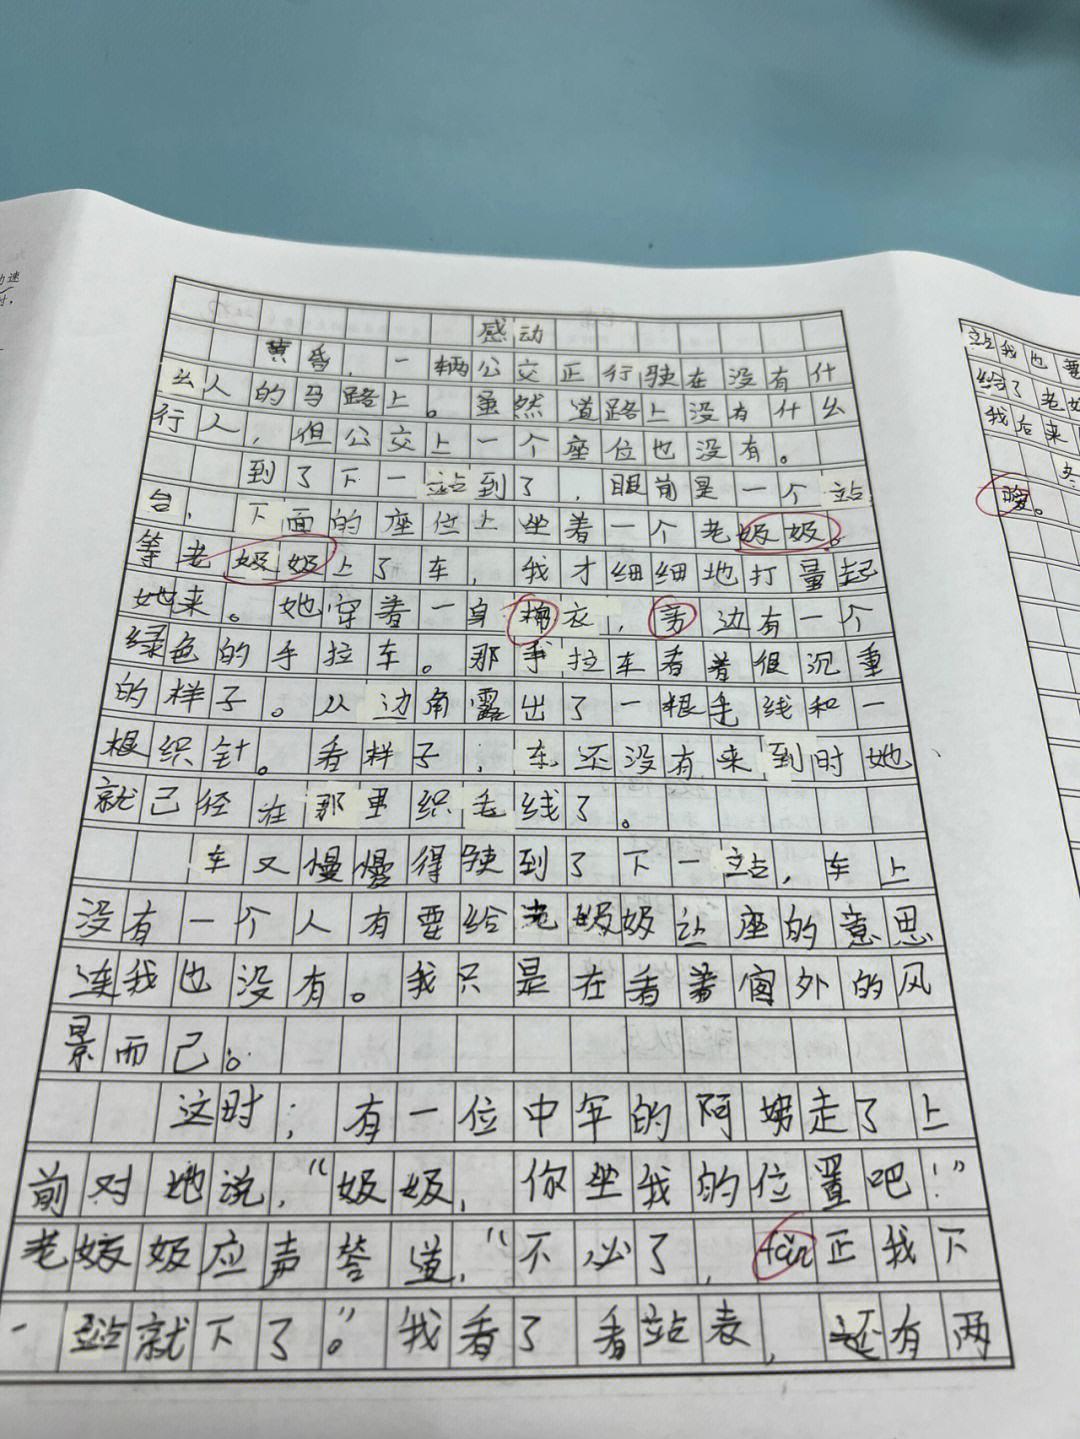 感动
黄昏，一辆公交正行驶在没有什
么人的马路上。虽然道路上没有什么
行人，但公交上一个座位也没有。
到了下一站到了，眼前是一个站
台，下面的座位上坐着一个老奶奶。
等老奶奶上了车，我才细细地打量起
她来。她穿着一身棉衣，旁边有一个
绿色的手拉车。那手拉车看着很沉重
的样子。从边角露出了一根毛线和一
根织针。看样子，车还没有来到时她
就已经在那里织毛线了。
车又慢慢得驶到了下一站，车上
没有一个人有要给老奶奶让座的意思
连我也没有。我只是在看着窗外的风
景而已。
这时，有一位中年的阿姨走了上
前对她说，“奶奶，你坐我的位置吧！”
老奶奶应声答道，“不必了，fan正我下
一站就下了。”我看了看站表，还有两
站我也要
给了老奶
我后来
冬
暖。